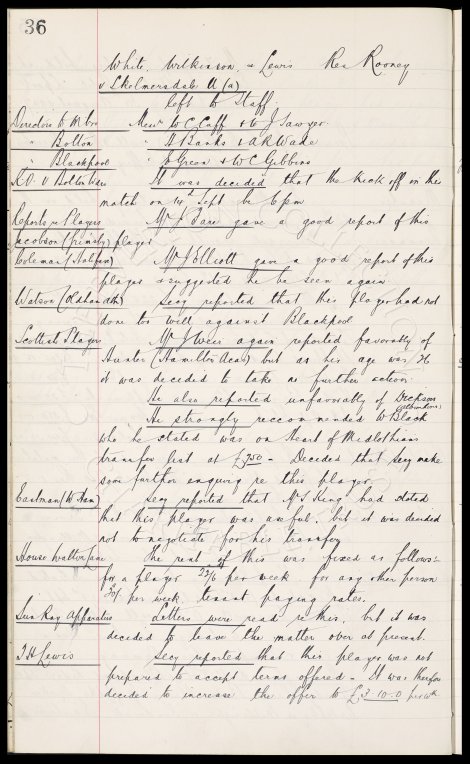 36
White, Wilkinson & Lewis Res Rooney
v Skelmersdale U (a)
left to Staff.
Directors to M'bro Messrs W C Cuff & W J Sawyer
" Bolton " H Banks & A R Wade
" Blackpool " J Green & W C Gibbins
K.O. v Bolton Wdrs It was decided that the kick off on this
match on 14th Sept be 6 pm
Reports re Players Mr J Fare gave a good report of this
Jacobson (Grimsby) player
Coleman (Halifax) Mr J Ellicott gave a good report of this
player & suggested he be seen again
Watson (Oldham Ath) Secy reported that this player had not
done too well against Blackpool
Scottish Players Mr J Weir again reported favorably of
Hunter (Hamilton Acas) but as his age was 26
it was decided to take no further action.
He also reported unfavorably of Dickson
He strongly recommended W Black
who he stated was on Heart of Midlothians
transfer list at £750 – Decided that Secy make
some further enquiry re this player
Eastman (W Ham) Secy reported that Mr S King had stated
that this player was useful, but it was decided
not to negotiate for his transfer
House Walton Lane The rent of this was fixed as follows:-
for a player per week for any other person
20/- per week tenant paying rates.
Sun Ray Apparatus Letters were read re this, but it was
decided to leave the matter over at present.
T H Lewis Secy reported that this player was not
prepared to accept terms offered – It was therefore
decided to increase the offer to £3-10-0 per wk